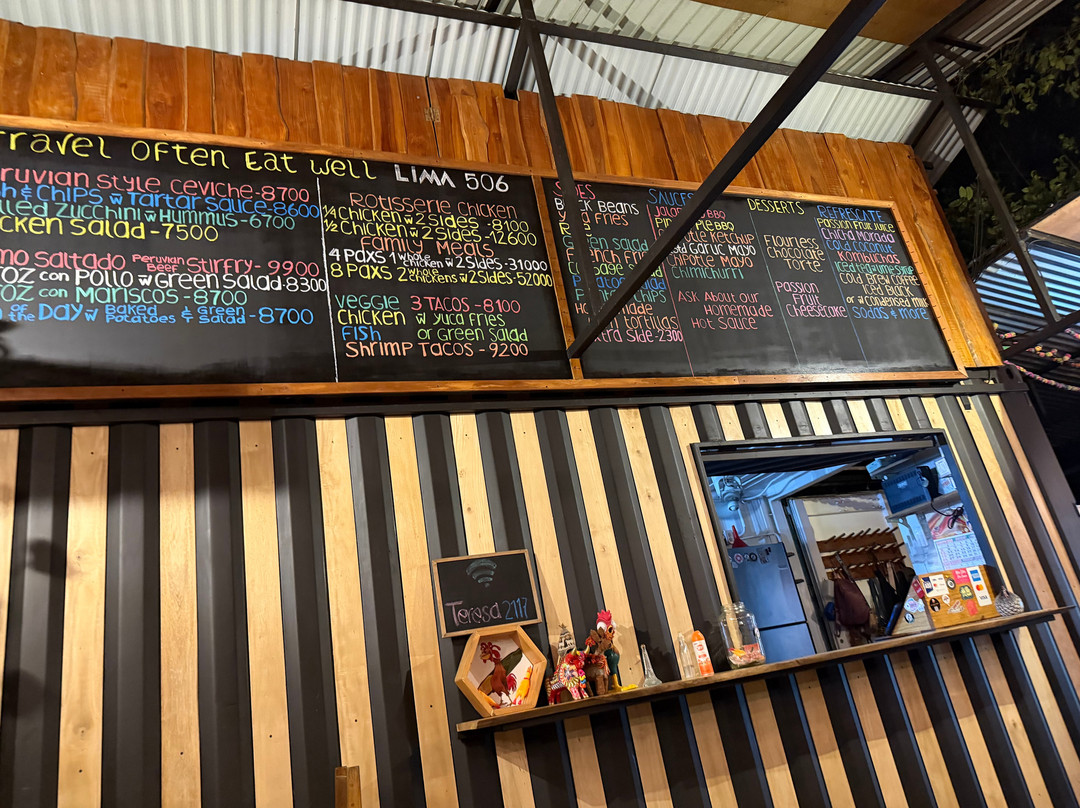 Travel Often Eat Well
LIMA 506
ruvian Style Ceviche-8700
h & Chips w Tartar Sauce-8600
lled Zucchini w Hummus-6700
cken Salad-7500
mo Saltado Peruvian Beef Stirfry-9900
roz con Pollo w Green Salad-8300
roz con Mariscos-8700
of the Day w Baked Potatoes & Green Salad-8700
Rotisserie Chicken
1/4 Chicken w 2 Sides-8100
1/2 Chicken w 2 Sides-12600
Family Meals
4 Paxs 1 whole chicken w 2 Sides-31000
8 Paxs 2 whole chickens w 2 Sides-52000
Veggie
Chicken
Fish
Shrimp Tacos-9200
3 Tacos-8100
w yuca fries
or Green Salad
Sides
Black Beans
Fries
een Salad
ench Fri
Sala
Chips
made
tortillas
xtra Side-2300
Sauces
BBQ
ple BBQ
Ketchup
Garlic Mayo
Chipotle Mayo
Chimichurri
Ask About Our
Homemade
Hot Sauce
Desserts
Flourless
Chocolate
Torte
Passion
Fruit
Cheesecake
Refrescate
Passion Fruit Juice
Chicha Morada
Kombuchas
Iced tea-lime syrup
Cold Brew Coffee
Iced Black
or w Condensed Milk
Sodas & more
Teresa 2117